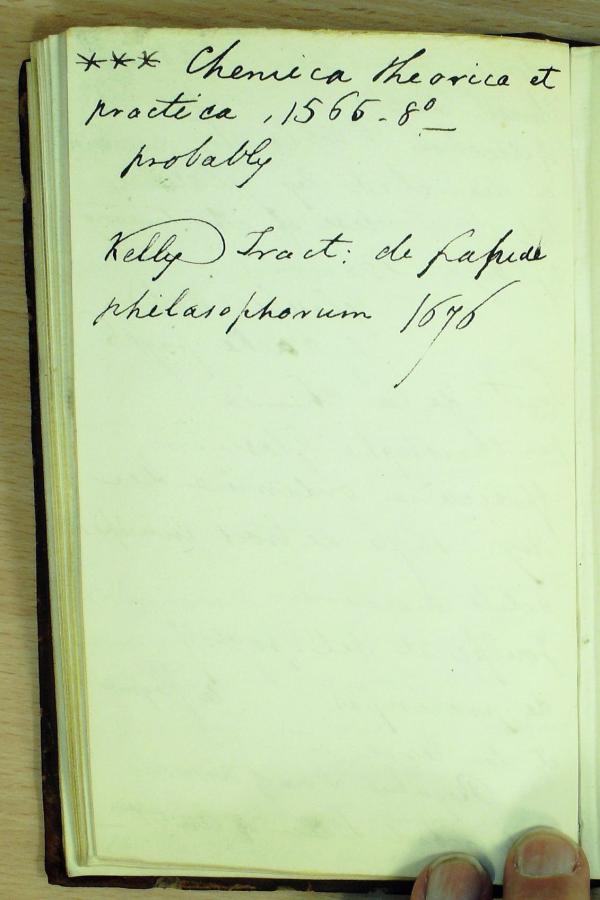 *** Chemica theorica et
practica, 1566 - 8º
probably
Kelly Tract: de Lapide
philosophorum 1676